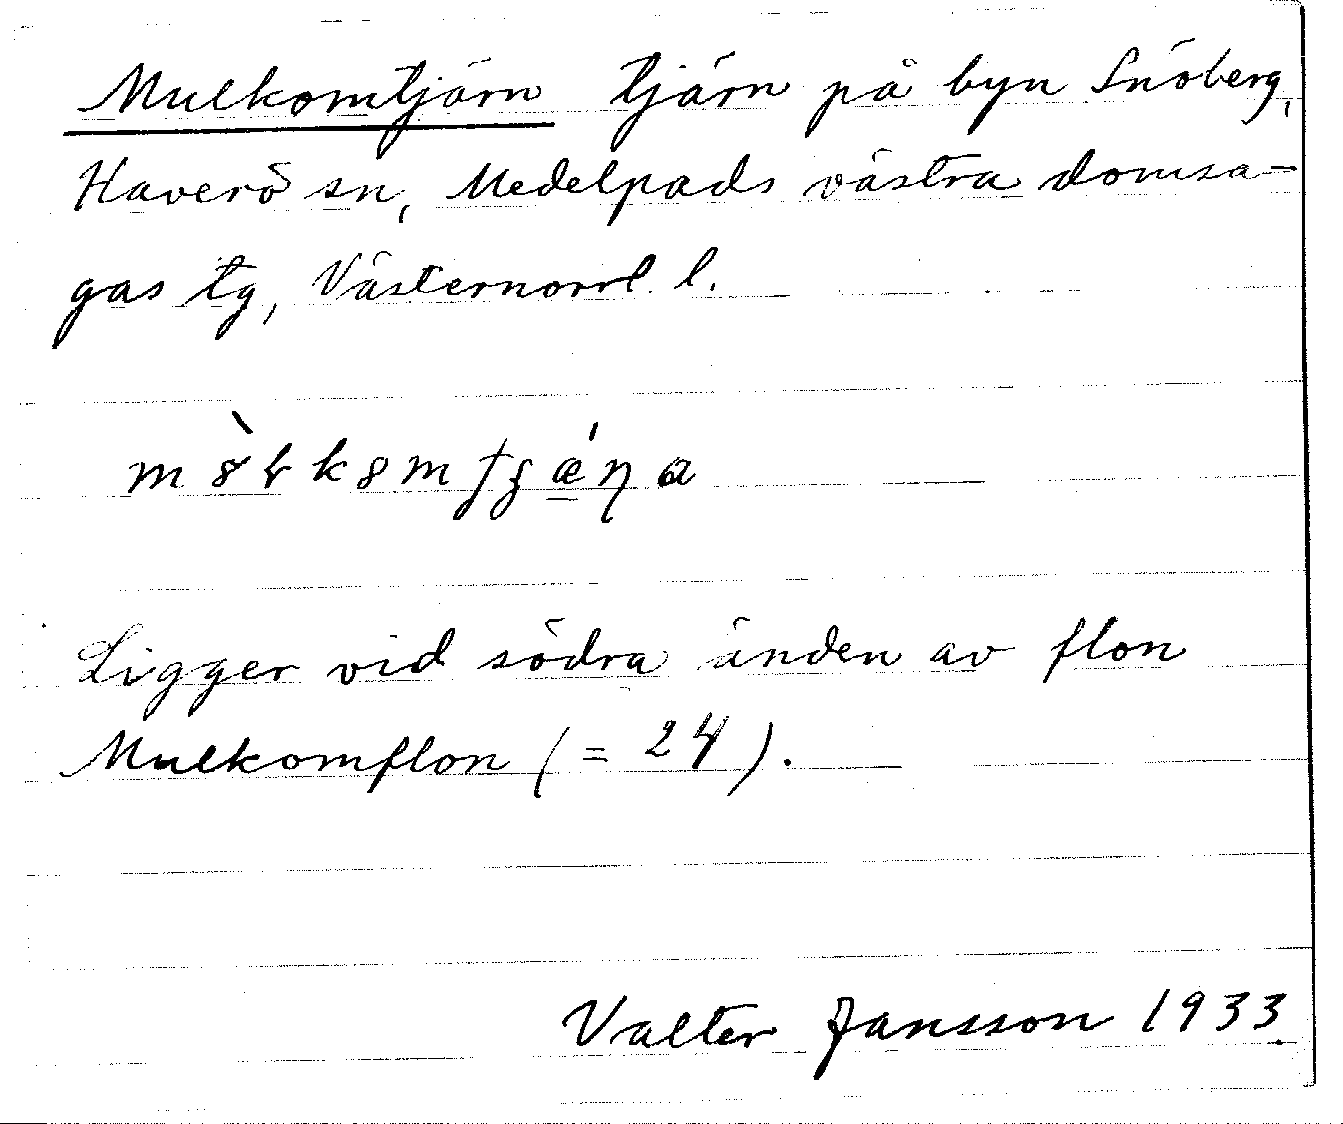 Mulkomtjärn tjärn på byn Snöberg,
Haverö sn, Medelpads västra domsa-
gas tg, Västernorrl. l.
Ligger vid södra änden av flon
Mulkomflon (= 24).
Valter Jansson 1933.